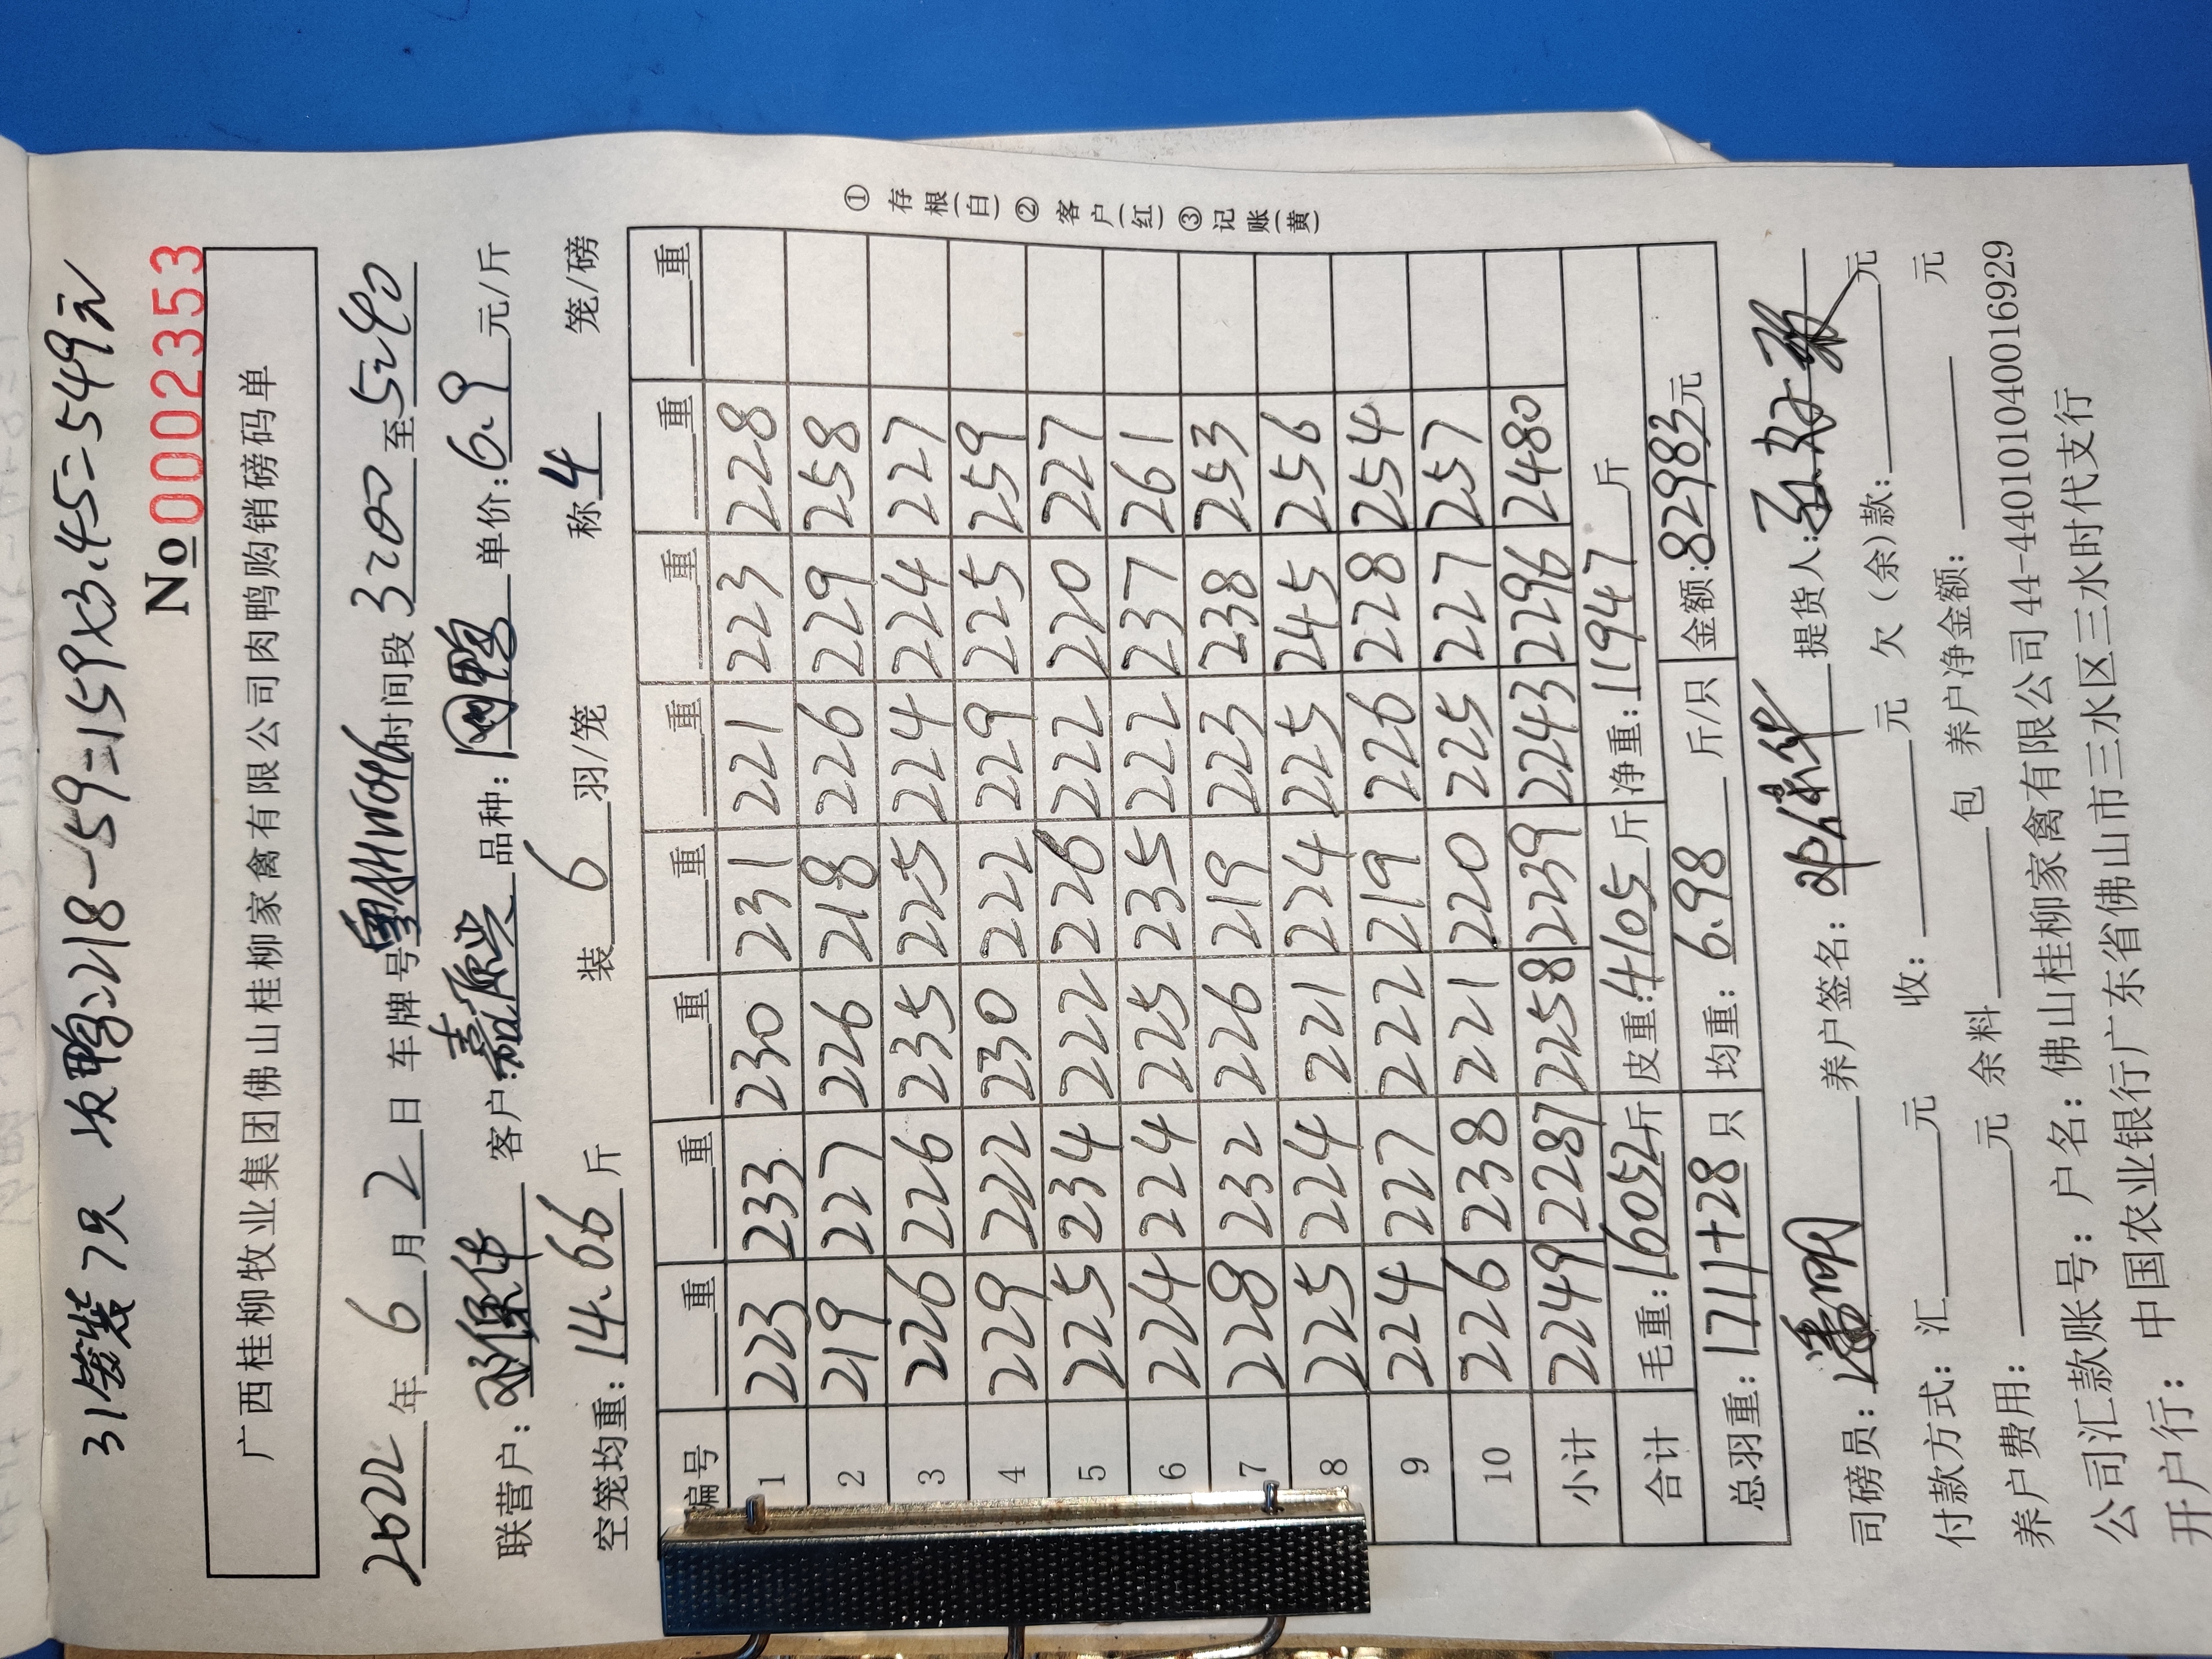 31笼装7只 次鸭=218-59=159×3.45=549元
№0002353
广西桂柳牧业集团佛山桂柳家禽有限公司肉鸭购销磅码单
2022年6月2日 车牌号 时间段3:00至5:40
联营户: 客户:嘉原兴 品种: 单价:6.9元/斤
空笼均重:14.66斤 装6羽/笼 称4笼/磅
编号 重 重 重 重 重 重 重 重
1 223 233 230 231 221 223 228
2 219 227 226 218 226 229 258
3 226 226 235 225 224 224 227
4 229 222 230 222 229 225 259
5 225 234 222 226 222 220 227
6 224 224 225 235 222 237 261
7 228 232 226 219 223 238 253
8 225 224 221 224 225 245 256
9 224 227 222 219 226 228 254
10 226 238 221 220 225 227 257
小计 2249 2287 2258 2239 2243 2296 2480
合计 毛重:16052斤 皮重:4105斤 净重:11947斤
总羽重:1711+28只 均重:6.98斤/只 金额:82983元
司磅员:潘明 养户签名: 提货人:
付款方式:汇元 收:元 欠(余)款:元
养户费用:元 余料包 养户净金额:元
公司汇款账号:户名:佛山桂柳家禽有限公司44-440101040016929
开户行:中国农业银行广东省佛山市三水区三水时代支行
①存根(白)②客户(红)③记账(黄)